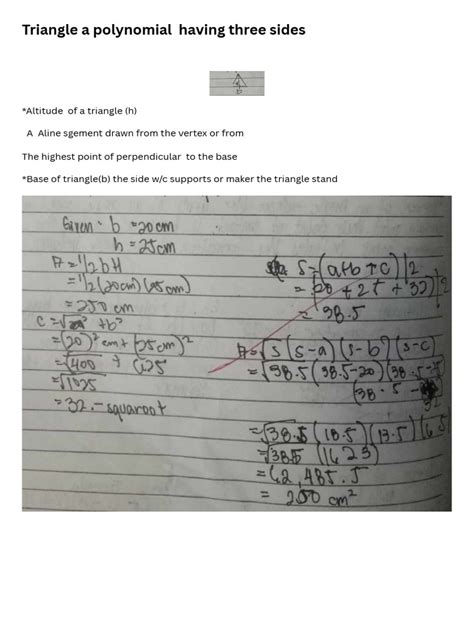 Triangle a polynomial having three sides
*Altitude of a triangle (h)
A Aline sgement drawn from the vertex or from
The highest point of perpendicular to the base
*Base of triangle(b) the side w/c supports or maker the triangle stand
Given: b = 20cm
h = 25cm
A = 1/2 bH
= 1/2 (20cm) (25cm)
= 250 cm
C = √a² + b²
= √(20)² cm + (25cm)²
= √400 +
= √1025
= 32.- squaroot
S = (a+b+c) / 2
= (20 + 25 + 32) / 2
= 38.5
A = √s (s-a) (s-b) (s-c)
= √38.5 (38.5-20) (38.5-25)
(38.5 -
= √38.5 (18.5) (13.5) (6.5
= √38.5 (1623)
= 62,485.5
= 250 cm²